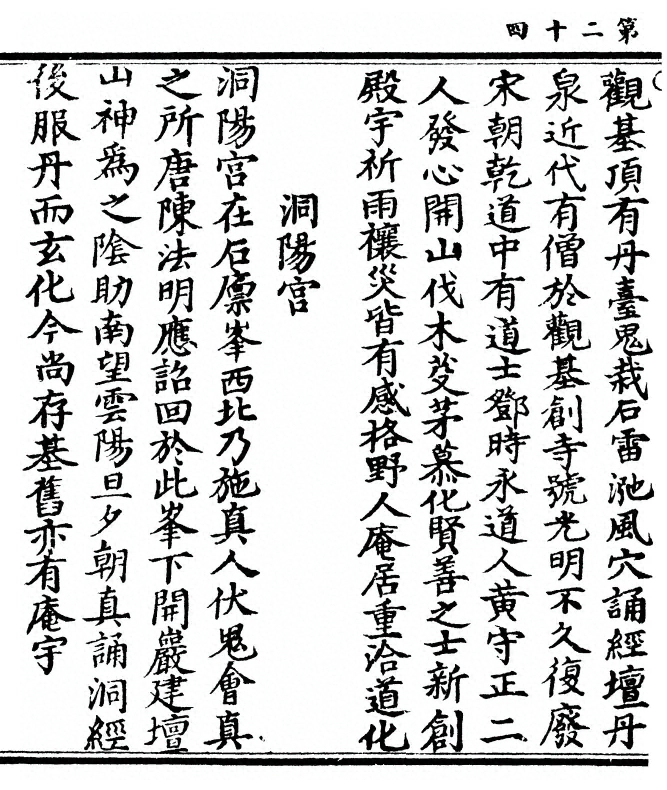 第二十四
觀基頂有丹臺鬼栽石雷池風穴誦經壇丹
泉近代有僧於觀基創寺號光明不久復廢
宋朝乾道中有道士鄧時永道人黃守正二
人發心開山伐木芟茅慕化賢善之士新創
殿宇祈雨禳災皆有感格野人庵居重洽道化
洞陽宮
洞陽宮在石廪峯西北乃施真人伏鬼會真
之所唐陳法明應詔回於此峯下開巖建壇
山神爲之隂助南望雲陽旦夕朝真誦洞經
後服丹而玄化今尚存基舊亦有庵宇